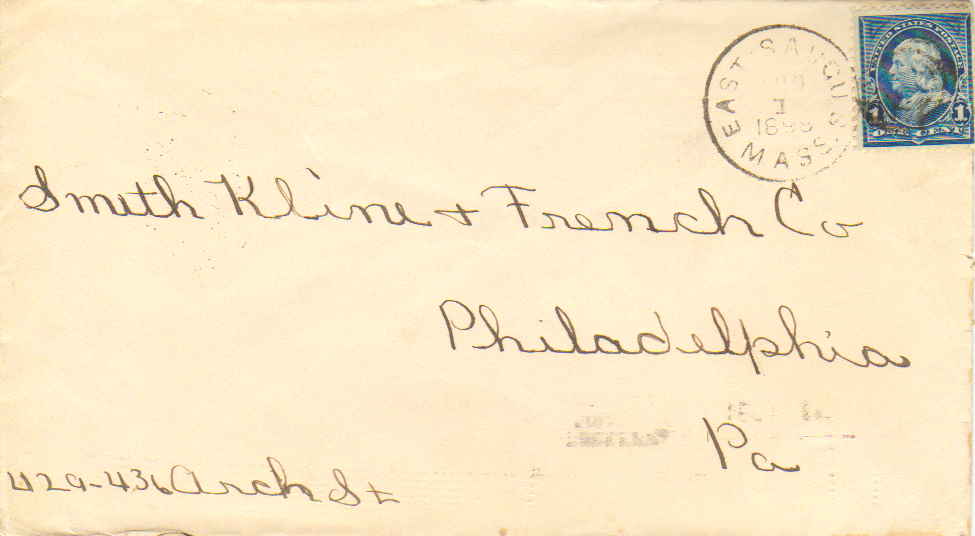 EAST SAUGUS
1
MASS
UNITED STATES POSTAGE
1 1
Smith Kline & French Co
Philadelphia
Pa
429-436 Arch St